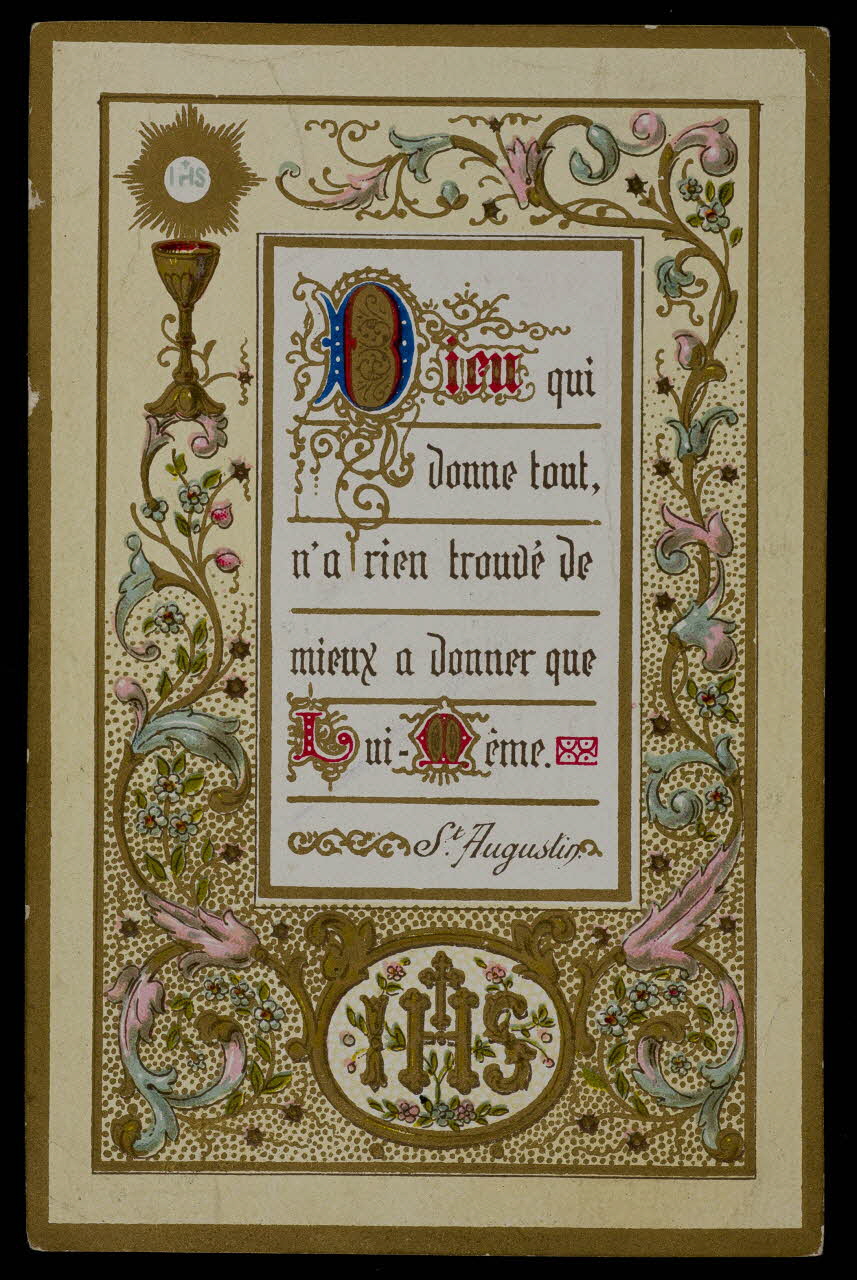 IHS
Dieu qui
donne tout,
n'a rien trouvé de
mieux a donner que
Lui-Même.
St. Augustin.
IHS